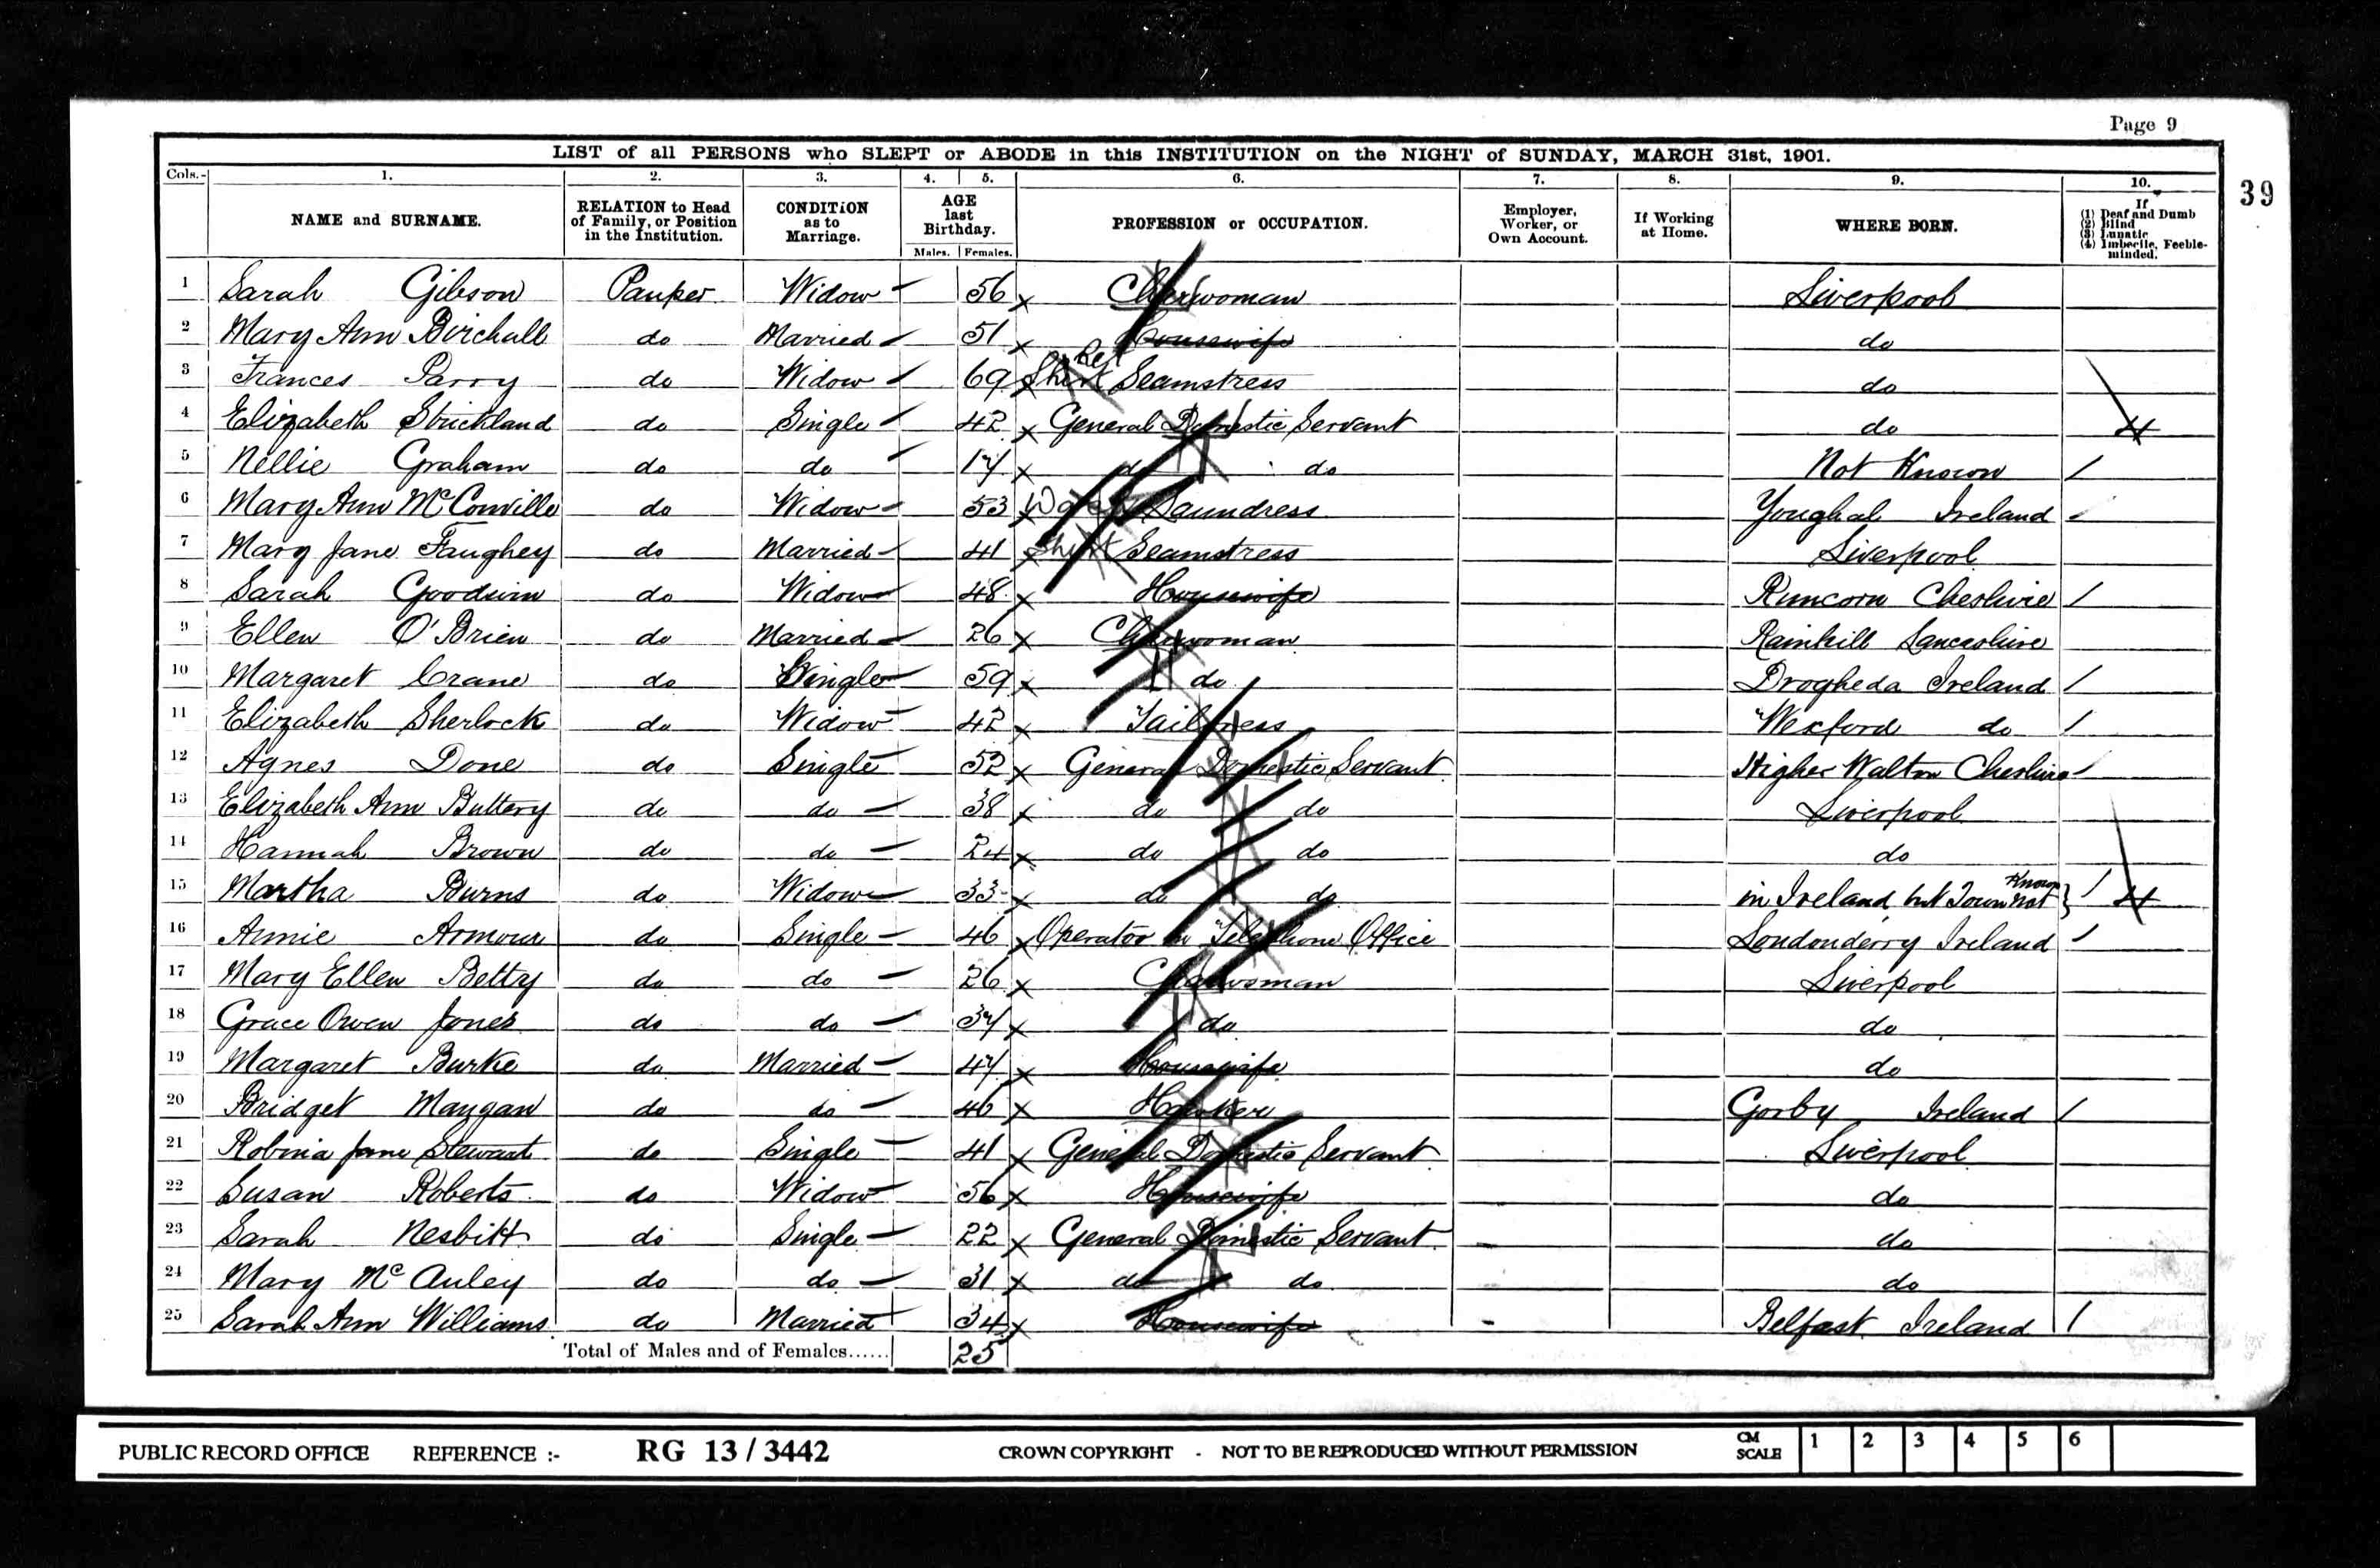 Page 9
LIST of all PERSONS who SLEPT or ABODE in this INSTITUTION on the NIGHT of SUNDAY, MARCH 31st, 1901.
39
Cols. 1. 2. 3. 4. 5. 6. 7. 8. 9. 10.
NAME and SURNAME. RELATION to Head of Family, or Position in the Institution. CONDITION as to Marriage. AGE last Birthday. Males. Females. PROFESSION or OCCUPATION. Employer, Worker, or Own Account. If Working at Home. WHERE BORN. If (1) Deaf and Dumb (2) Blind (3) Lunatic (4) Imbecile, Feeble-minded.
1 Sarah Gibson Pauper Widow 56 x Charwoman Liverpool
2 Mary Ann Birchall do Married 51 x Housewife do
3 Frances Parry do Widow 69 x Shirt Seamstress do
4 Elizabeth Strickland do Single 42 x General Domestic Servant do 4
5 Nellie Graham do do 17 x do do Not Known /
6 Mary Ann McConville do Widow 53 x Laundress Youghal Ireland
7 Mary Jane Faughey do Married 41 x Shirt Seamstress Liverpool
8 Sarah Goodwin do Widow 48 x Housewife Runcorn Cheshire /
9 Ellen O'Brien do Married 26 x Charwoman Rainhill Lancashire
10 Margaret Crane do Single 59 x do Drogheda Ireland /
11 Elizabeth Sherlock do Widow 42 x Tailoress Wexford do /
12 Agnes Done do Single 52 x General Domestic Servant Higher Walton Cheshire /
13 Elizabeth Ann Buttery do do 38 x do do Liverpool
14 Hannah Brown do do 24 x do do do
15 Martha Burns do Widow 33 x do do in Ireland, but Town not Known } / 4
16 Annie Armour do Single 46 x Operator in Telephone Office Londonderry Ireland /
17 Mary Ellen Betty do do 26 x Charwoman Liverpool
18 Grace Owen Jones do do 37 x do do
19 Margaret Burke do Married 47 x Housewife do
20 Bridget Mangan do do 46 x Hawker Gorby Ireland /
21 Robina Jane Stewart do Single 41 x General Domestic Servant Liverpool
22 Susan Roberts do Widow 56 x Housewife do
23 Sarah Nesbitt do Single 22 x General Domestic Servant do
24 Mary McAuley do do 31 x do do do
25 Sarah Ann Williams do Married 34 x Housewife Belfast Ireland /
Total of Males and of Females...... 25
PUBLIC RECORD OFFICE REFERENCE :- RG 13 / 3442 CROWN COPYRIGHT - NOT TO BE REPRODUCED WITHOUT PERMISSION CM SCALE 1 2 3 4 5 6